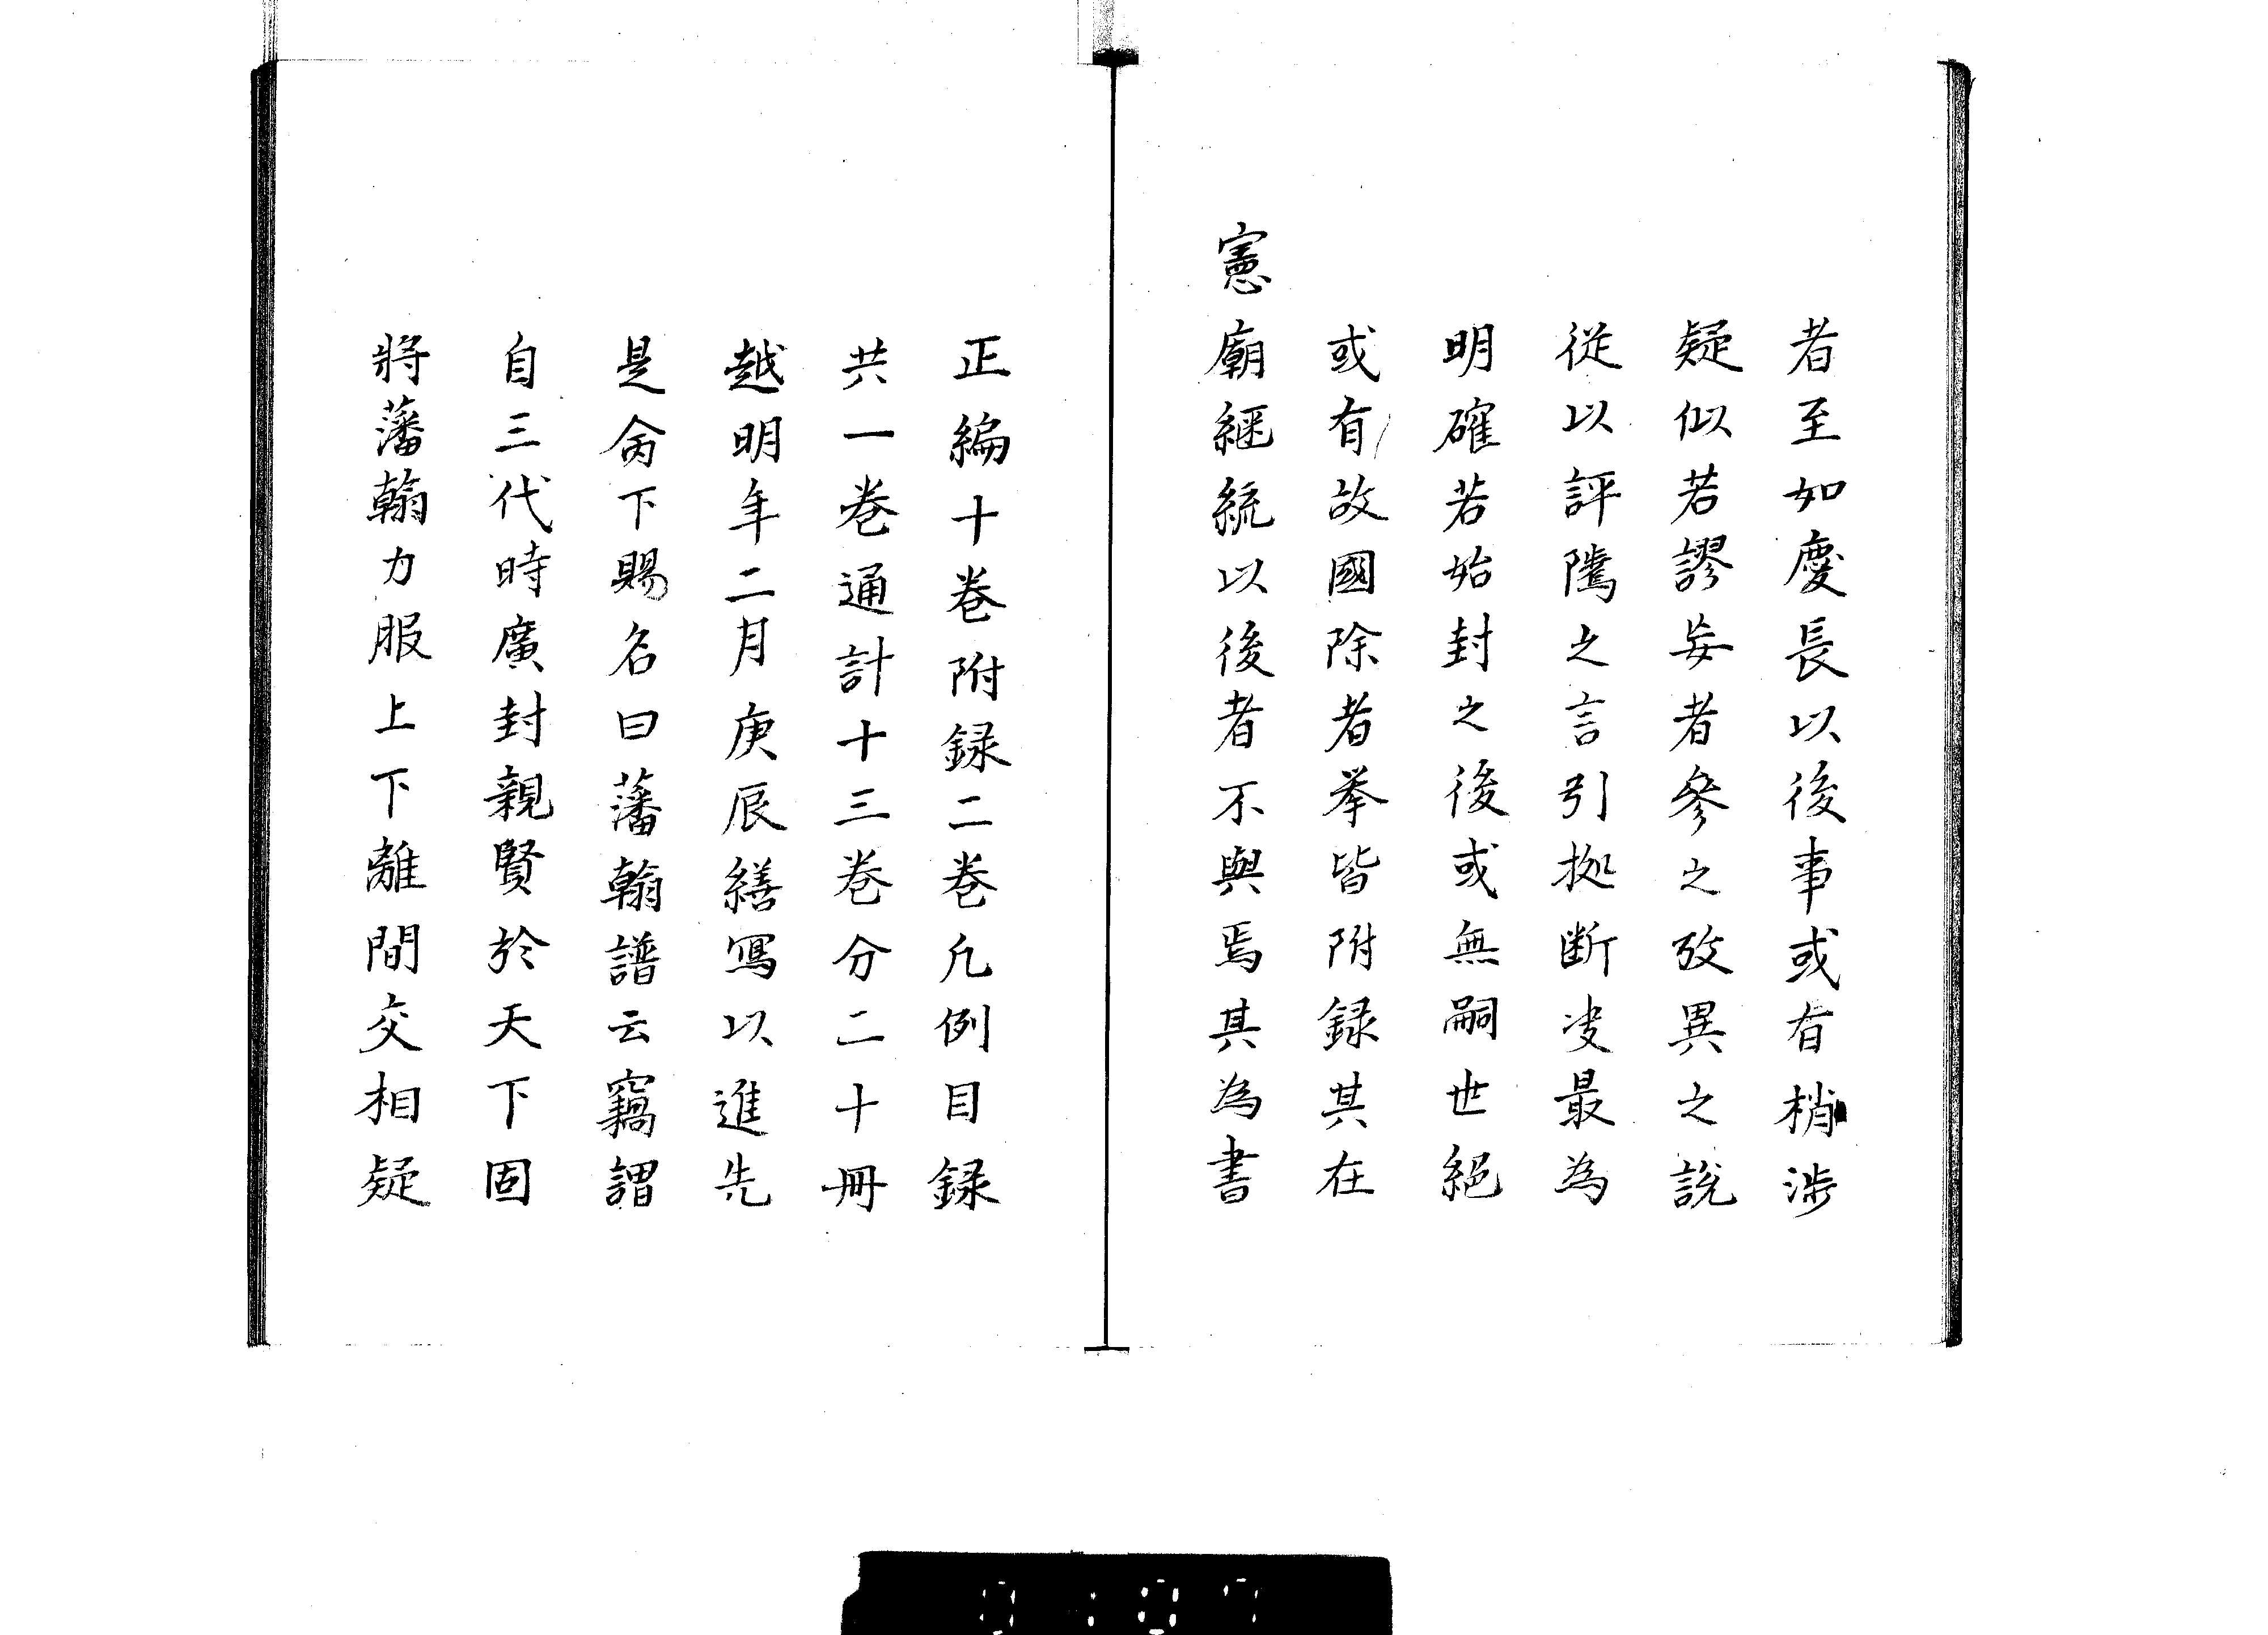 者至如慶長以後事或有稍渉
疑似若謬妄者參之攷異之說
從以評隲之言引拠断决最為
明確若始封之後或無嗣世絕
或有故國除者挙皆附録其在
憲廟継統以後者不與焉其為書
正編十卷附録二卷凡例目録
共一卷通計十三卷分二十冊
越明年二月庚辰繕寫以進先
是命下賜名曰藩翰譜云竊謂
自三代時廣封親賢於天下固
將藩翰力服上下離間交相疑